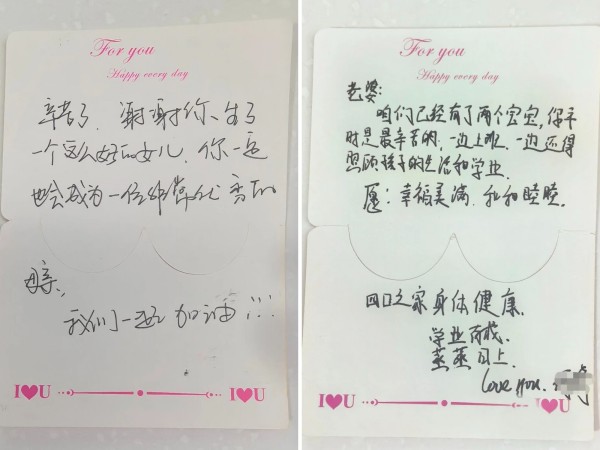 For you
Happy every day
辛苦了，谢谢你，生了
一个这么好的女儿，你一定
也会成为一位非常优秀的
母亲，
我们一起加油!!!
I♥U I♥U
For you
Happy every day
老婆：
咱们已经有了两个宝宝，你平
时是最辛苦的，一边上班，一边还得
照顾孩子的生活和学业。
愿：幸福美满，和和睦睦。
四口之家身体健康，
学业有成，
蒸蒸日上。
Love you.
I♥U I♥U